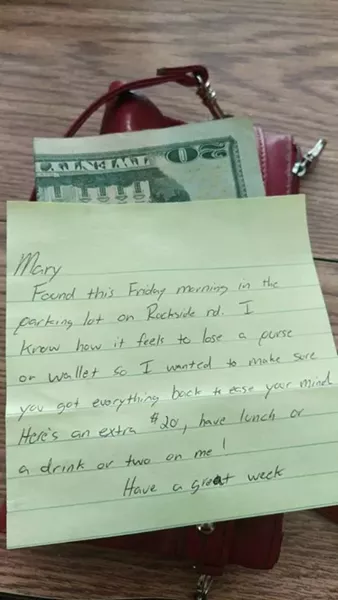 TWENTY 20
Mary
Found this Friday morning in the
parking lot on Rockside rd. I
know how it feels to lose a purse
or wallet so I wanted to make sure
you got everything back to ease your mind
Here's an extra $20, have lunch or
a drink or two on me!
Have a great week